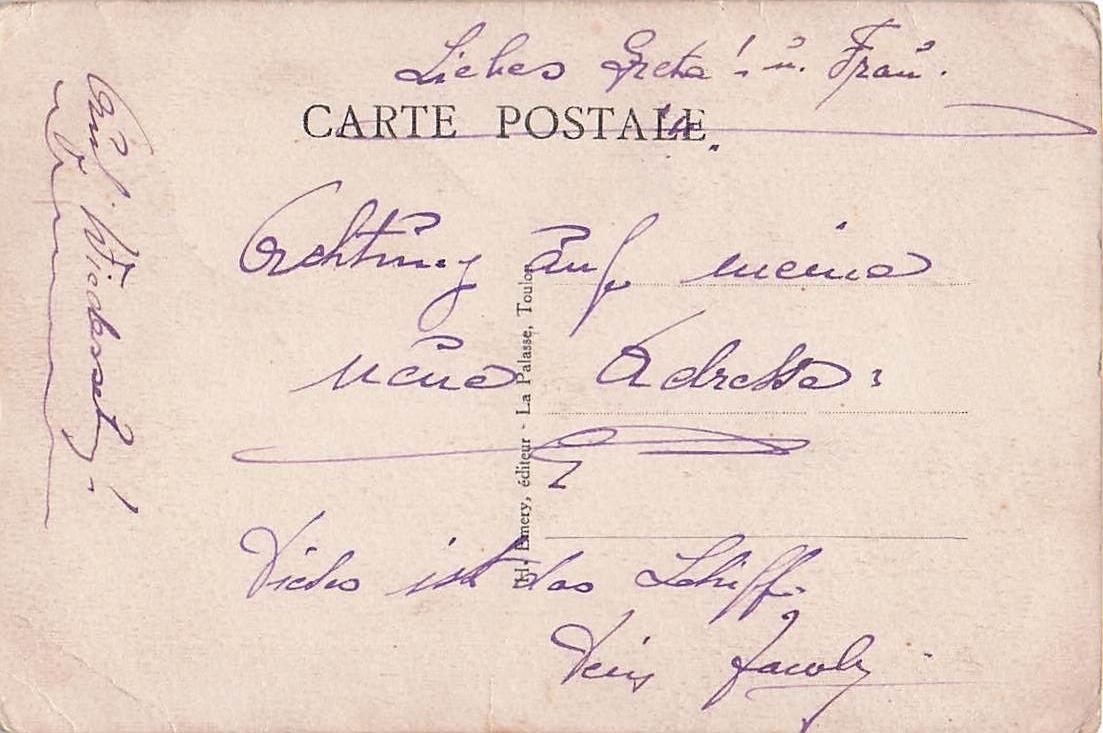 Liebes Greta! u. Frau.
CARTE POSTALE
Achtung auf meine
neue Adresse:
Dieses ist das Schiff.
Dein Jacoby.
H. Emery, éditeur - La Palasse, Toulon
Auf Wiedersehn!